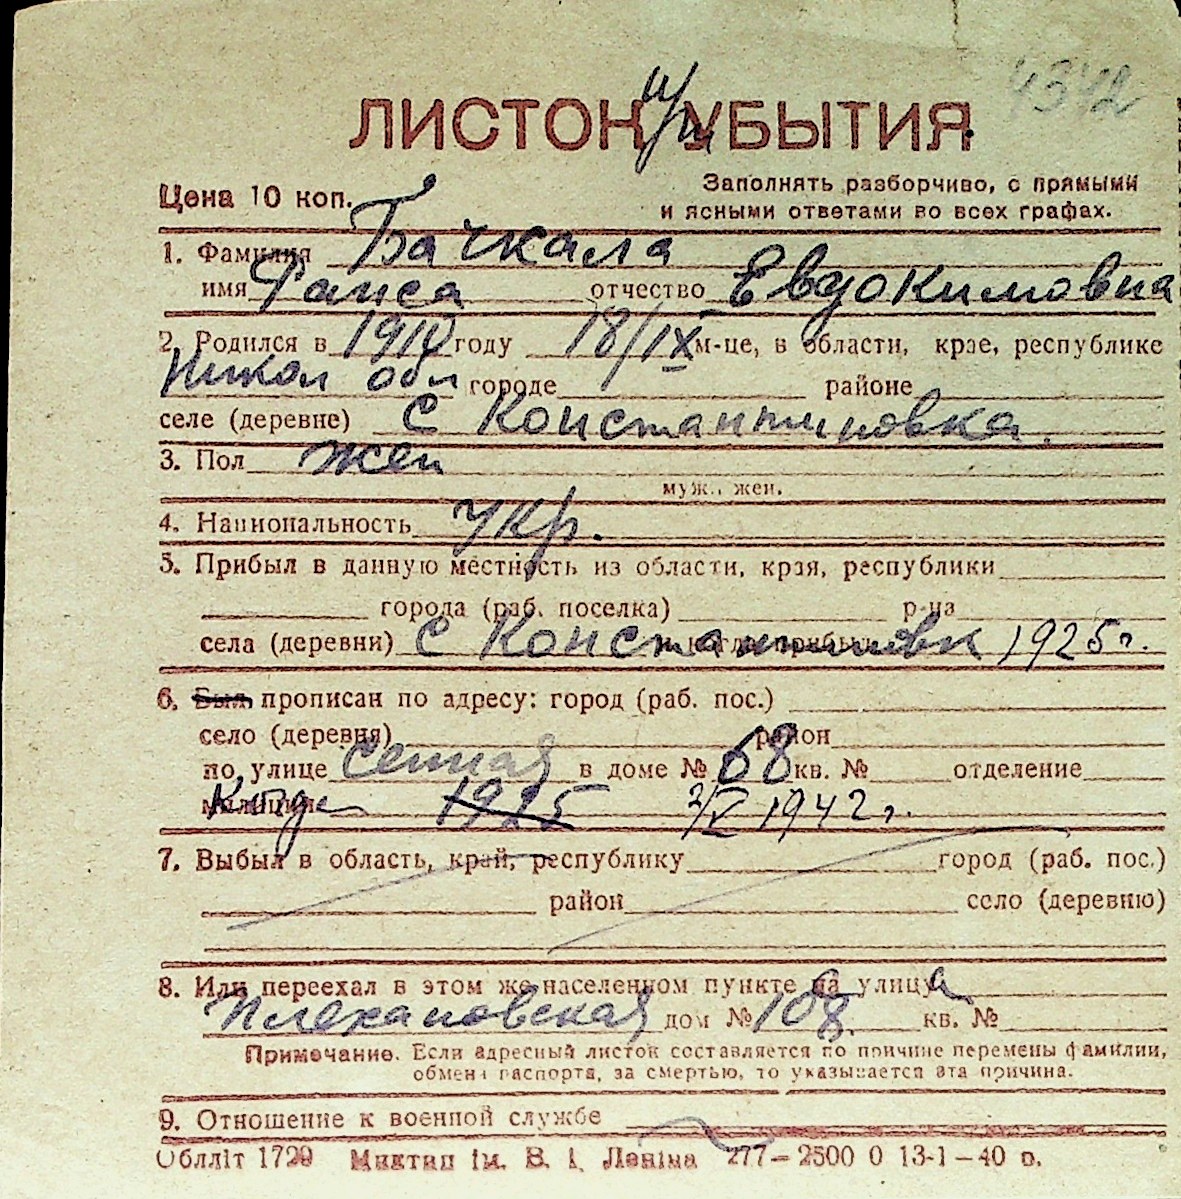 4342
ЛИСТОК УБЫТИЯ
Цена 10 коп.
Заполнять разборчиво, с прямыми
и ясными ответами во всех графах.
1. Фамилия Бачкала
имя Раиса отчество Евдокимовна
2. Родился в 1910 году 18/IX м-це, в области, крае, республике
Никол обл городе районе
селе (деревне) с Константиновка.
3. Пол жен
муж., жен.
4. Национальность укр.
5. Прибыл в данную местность из области, края, республики
города (раб. поселка) р-на
села (деревни) с Константиновк 1925 г.
6. Был прописан по адресу: город (раб. пос.)
село (деревня) район
по улице Сенная в доме № 68 кв. № отделение
милиции Когда 1925 2/X 1942 г.
7. Выбыл в область, край, республику город (раб. пос.)
район село (деревню)
8. Или переехал в этом же населенном пункте на улицу
Плехановская дом № 108. кв. №
Примечание. Если адресный листок составляется по причине перемены фамилии,
обмена паспорта, за смертью, то указывается эта причина.
9. Отношение к военной службе
Обллiт 1729 Миктип iм. В. I. Ленiна 277—2500 0 13-1—40 р.